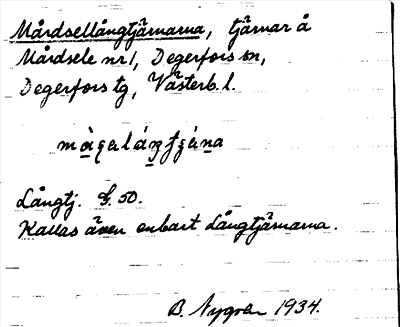 Mårdsellångtjärnarna, tjärnar å
Mårdsele nr 1, Degerfors sn,
Degerfors tg, Västerb. l.
Långtj. G. 50.
Kallas även enbart Långtjärnarna.
B. Nygren 1934.